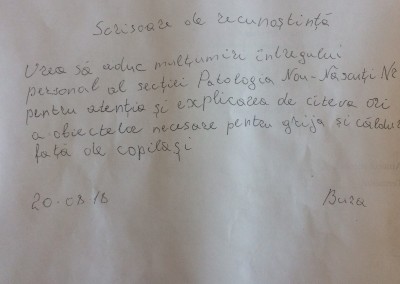 Scrisoare de recunoștință
Vrea să aduc mulțumiri întregului
personal al secției Patologia Nou-Născuți N2
pentru atenția și explicarea de citeva ori
a obiectelor necesare pentru grija și căldur
față de copilași
20.08.18